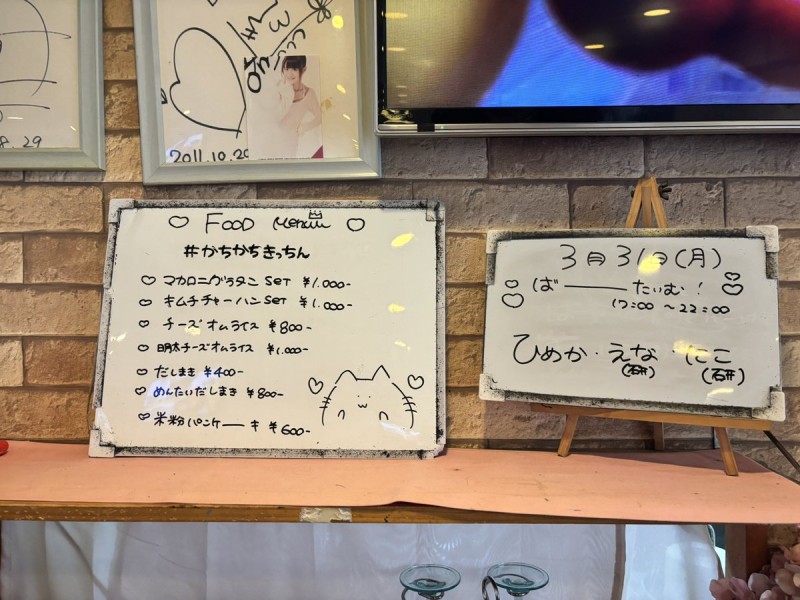 8.29
2011.10.20
FOOD menu
#かちかちきっちん
マカロニグラタン SET ¥1.000-
キムチチャーハン SET ¥1.000-
チーズオムライス ¥800-
明太チーズオムライス ¥1.000-
だしまき ¥400-
めんたいだしまき ¥800-
米粉パンケーキ ¥600-
3月31日(月)
ば―――たいむ!
17:00 ~ 22:00
ひめか・えな・にこ
(研) (研)